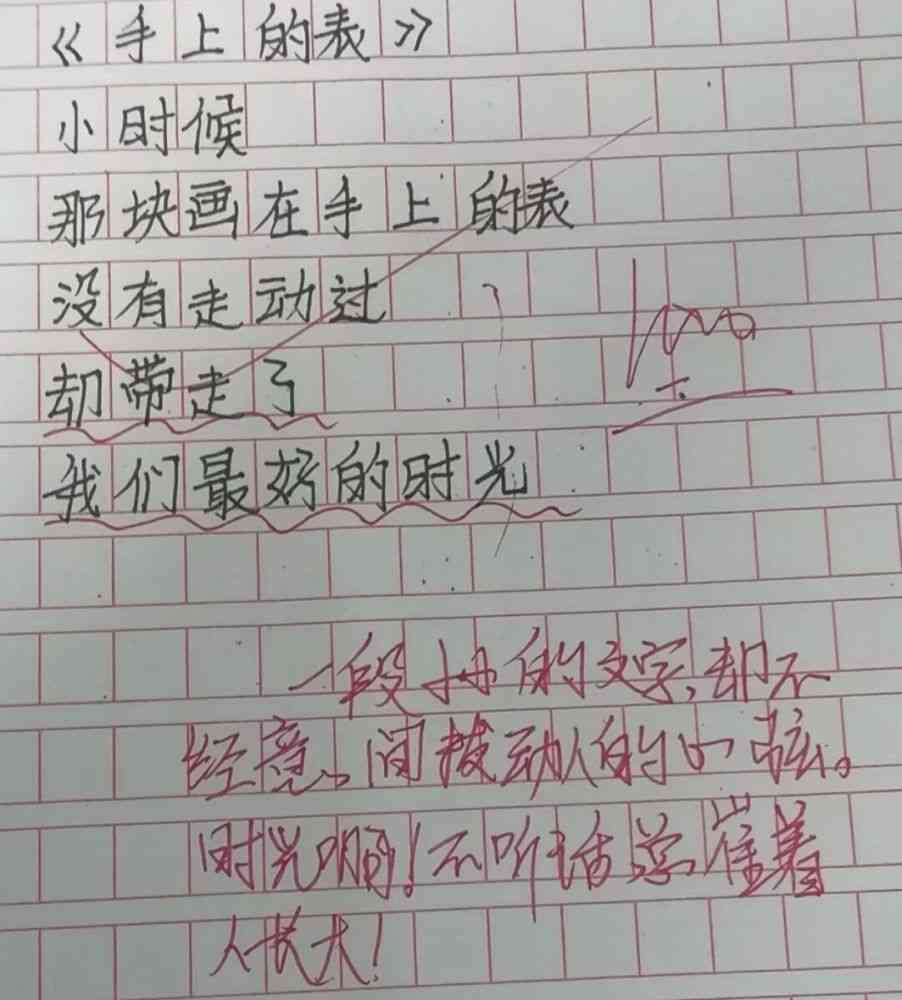 《手上的表》
小时候
那块画在手上的表
没有走动过
却带走了
我们最好的时光
100
一段小小的文字,却不
经意间拨动人的心弦。
时光啊!不听话总崔着
人长大!